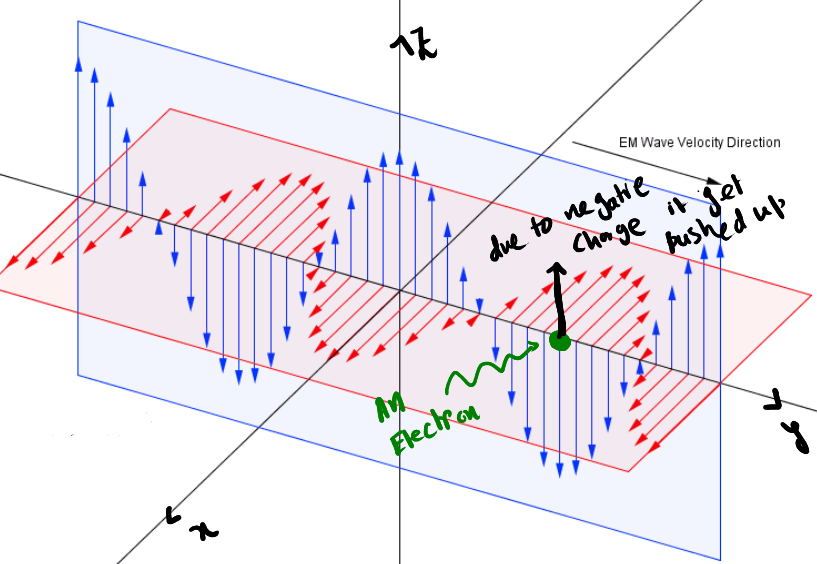 z
EM Wave Velocity Direction
due to negative it get
charge pushed up
An
Electron
y
x